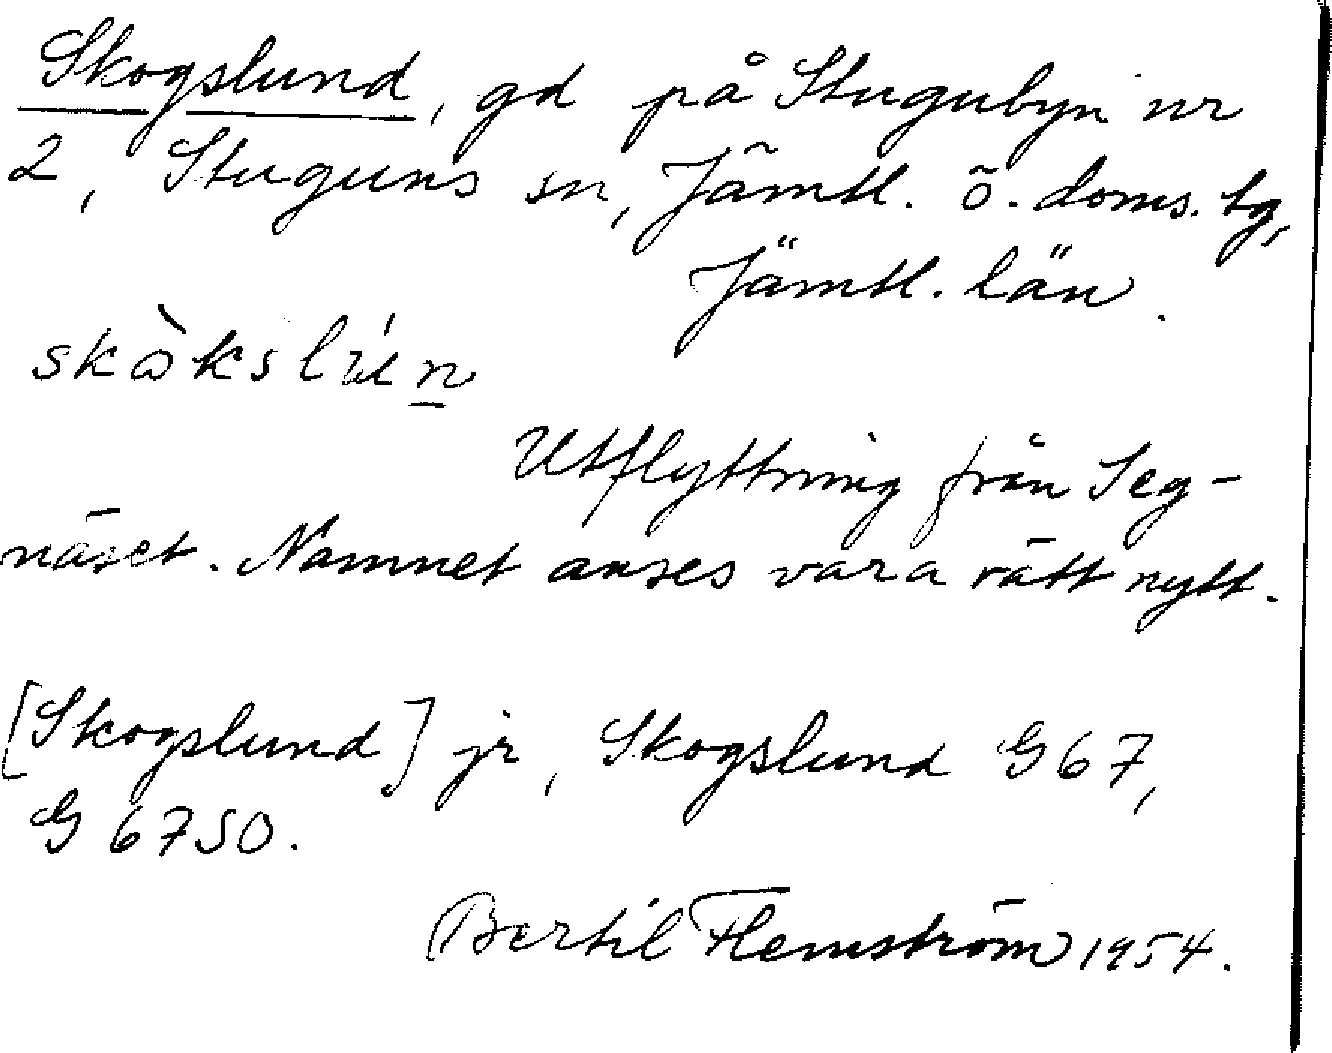 Skogslund, gd på Stugubyn nr
2, Stuguns sn, Jämtl. ö. doms. tg,
Jämtl. län.
skòkslún
Utflyttning från Seg-
näset. Namnet anses vara rätt nytt.
[Skogslund] jr, Skogslund G67,
G67SO.
Bertil Flemström 1954.